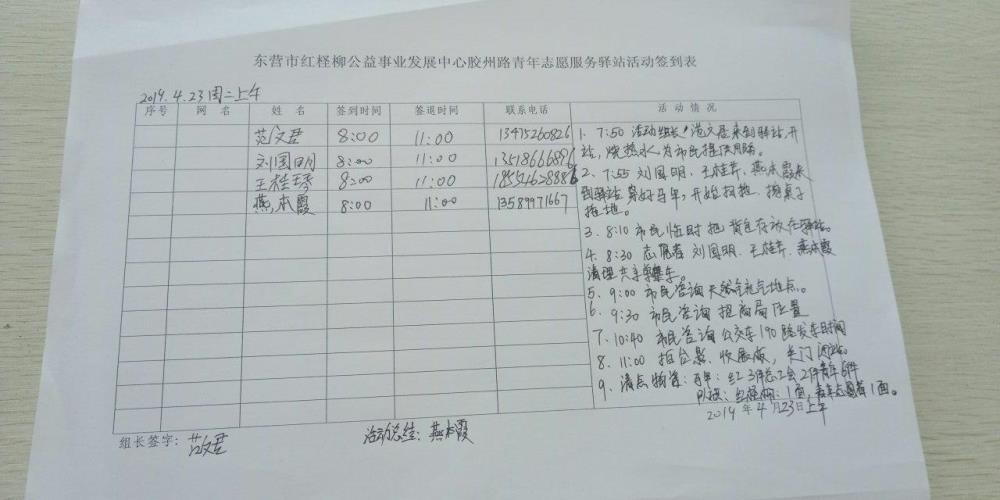 东营市红柽柳公益事业发展中心胶州路青年志愿服务驿站活动签到表
2019.4.23周二上午
序号 网名 姓名 签到时间 签退时间 联系电话 活动情况
范文君 8:00 11:00 13415260826
刘国明 8:00 11:00 13518666896
王桂芹 8:00 11:00 18554628886
燕本霞 8:00 11:00 13589971667
1. 7:50 活动组长范文君来到驿站,开
站,烧热水,为市民提供服务。
2. 7:55 刘国明、王桂芹、燕本霞来
到驿站穿好马甲,开始扫地、擦桌子
拖地。
3. 8:10 市民临时把背包存放在驿站。
4. 8:30 志愿者刘国明、王桂芹、燕本霞
清理共享单车。
5. 9:00 市民咨询天然气充气地点。
6. 9:30 市民咨询招商局位置
7. 10:40 市民咨询公交车190路发车时间
8. 11:00 拍合影、收展板,关门闭站。
9. 清点物资:马甲:红3件总工会2件青年6件
队旗:红柽柳:1面,青年志愿者1面。
2019年4月23日上午
组长签字:范文君 活动总结:燕本霞